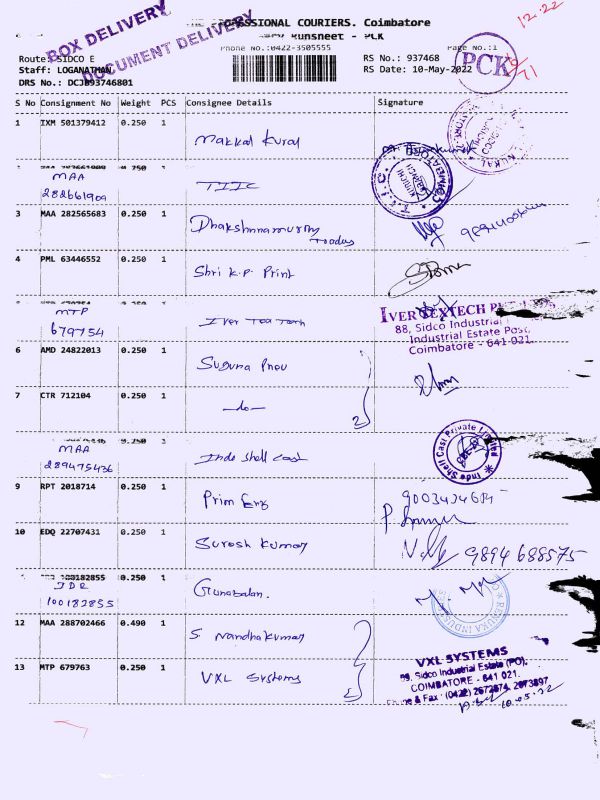 BOX DELIVERY
DOCUMENT DELIVERY
SSIONAL COURIERS. Coimbatore
Runsheet - PCK
Phone No.:0422-3505555
Page No.:1
12.22
PCK
Route: SIDCO E
RS No.: 937468
Staff: LOGANATHAN
RS Date: 10-May-2022
DRS No.: DCJB93746801
S No Consignment No Weight PCS Consignee Details Signature
1 IXM 501379412 0.250 1 Makkal Kural
MAA 282661909 TIIC
3 MAA 282565683 0.250 1 Dhakshnamurthy Traders
4 PML 63446552 0.250 1 Shri K.P. Print
MTP 679754 Iver Tea Tech
IVER TEXTECH
88, Sidco Industrial
Industrial Estate Post,
Coimbatore - 641 021.
6 AMD 24822013 0.250 1 Suguna Pneu
7 CTR 712104 0.250 1 -do- 2
MAA 289475436 Indo Shell Cast
Indo Shell Cast Private Limited
9 RPT 2018714 0.250 1 Prim Eng
10 EDQ 22707431 0.250 1 Suresh Kumar 9894688575
IDR 100182855 0.250 1 Gunabalan.
RENUKA INDUS
12 MAA 288702466 0.490 1 S. Nandhakumar
13 MTP 679763 0.250 1 VXL Systems 2
VXL SYSTEMS
59, Sidco Industrial Estate (PO),
COIMBATORE - 641 021.
Phone & Fax : (0422) 2672874, 2673897
10.05.22